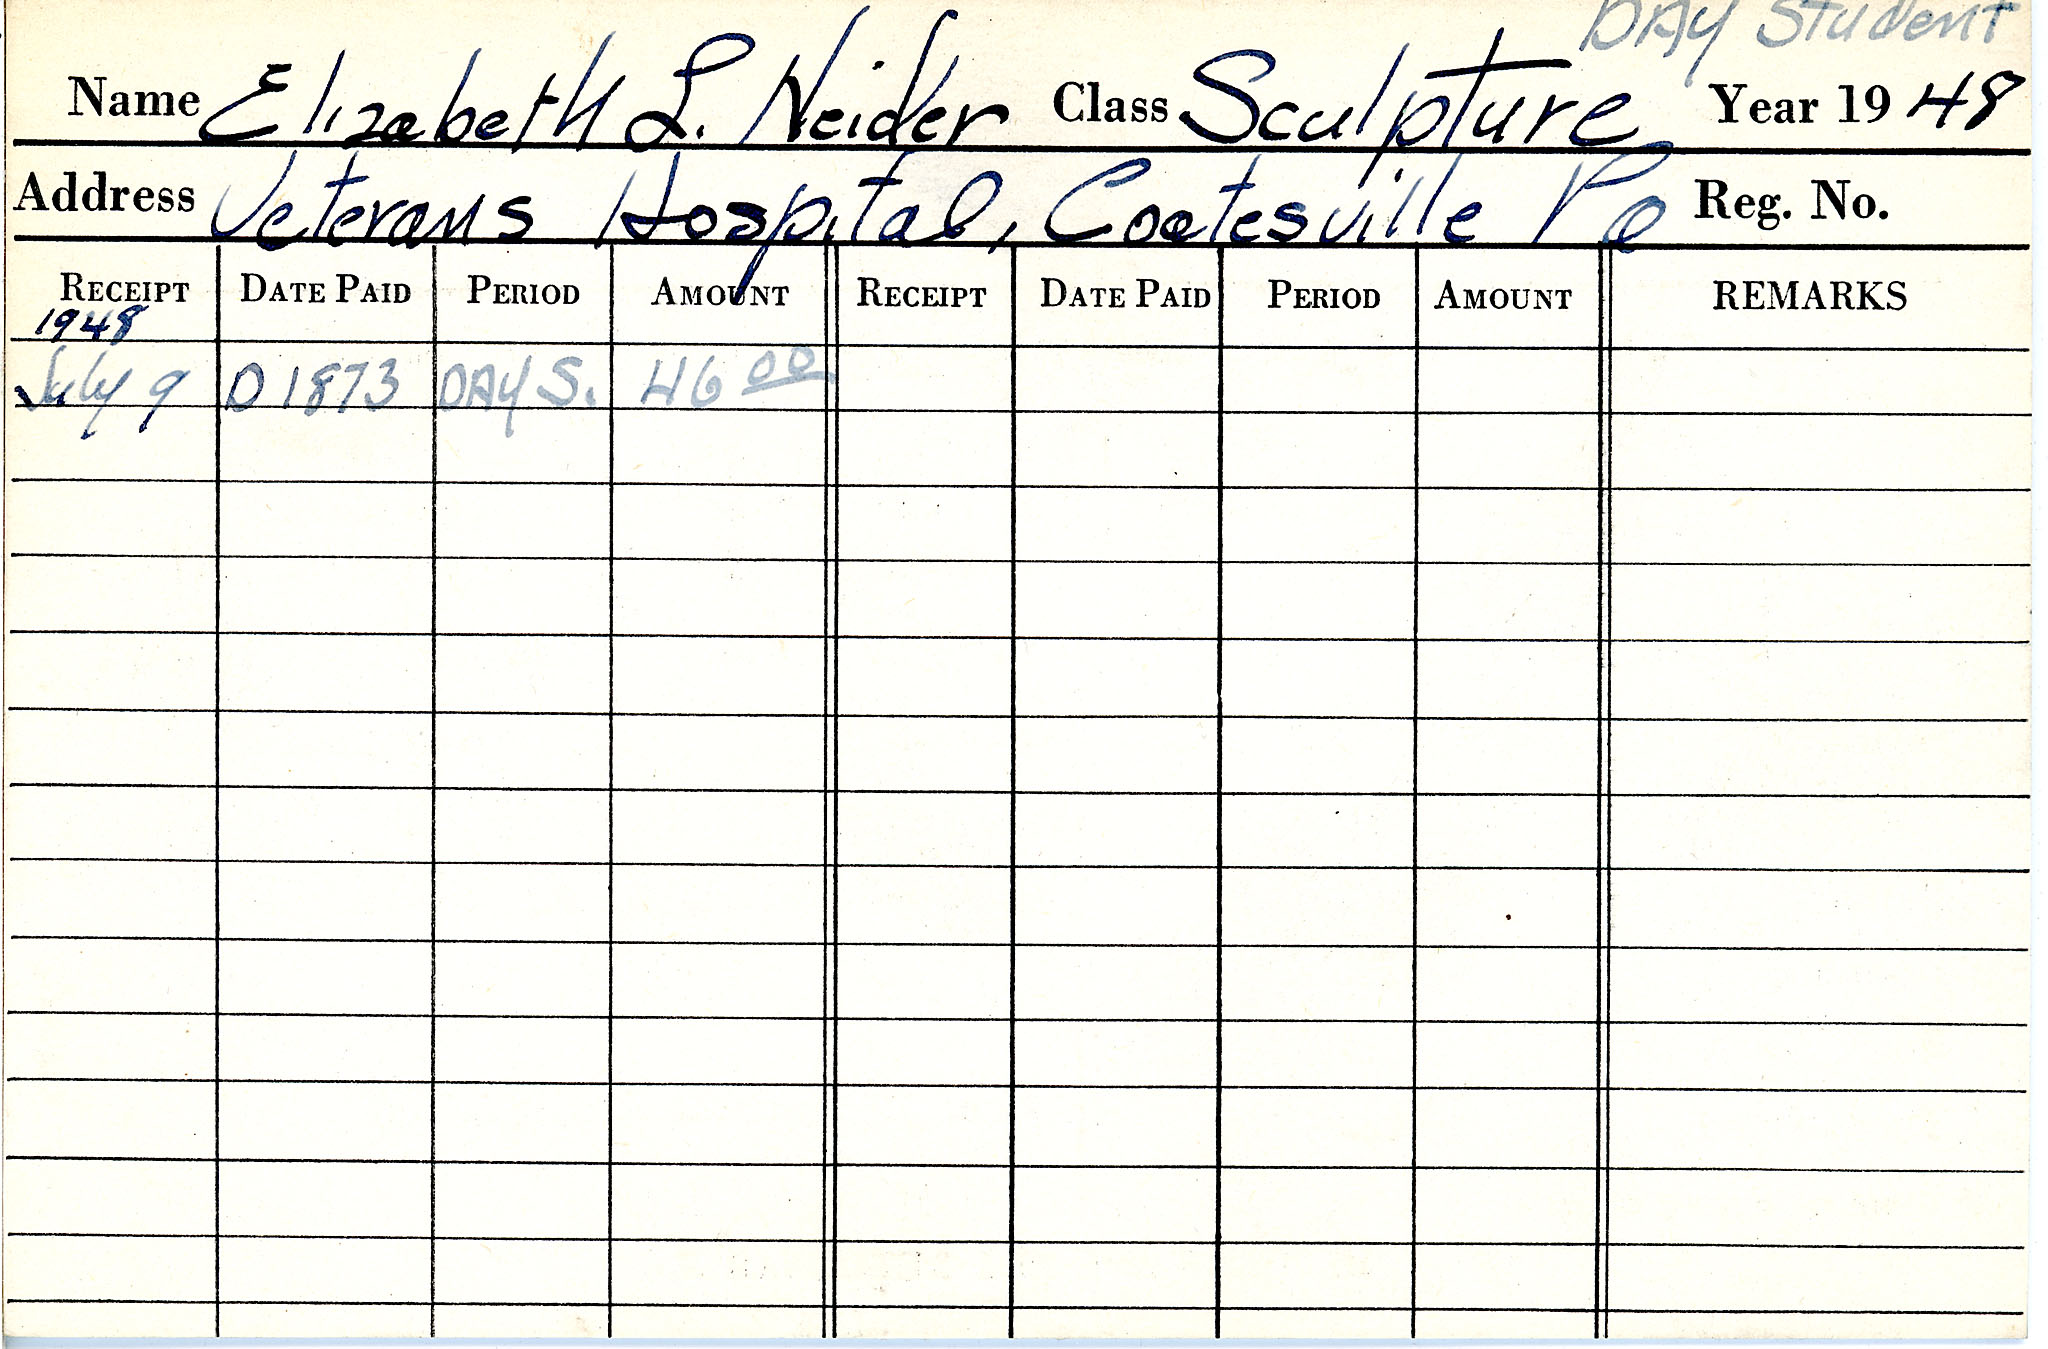 DAY Student
Name Elizabeth L. Neider Class Sculpture Year 19 48
Address Veterans Hospital, Coatesville Pa Reg. No.
RECEIPT DATE PAID PERIOD AMOUNT RECEIPT DATE PAID PERIOD AMOUNT REMARKS
1948
July 9 D1873 DAY S. 46 00